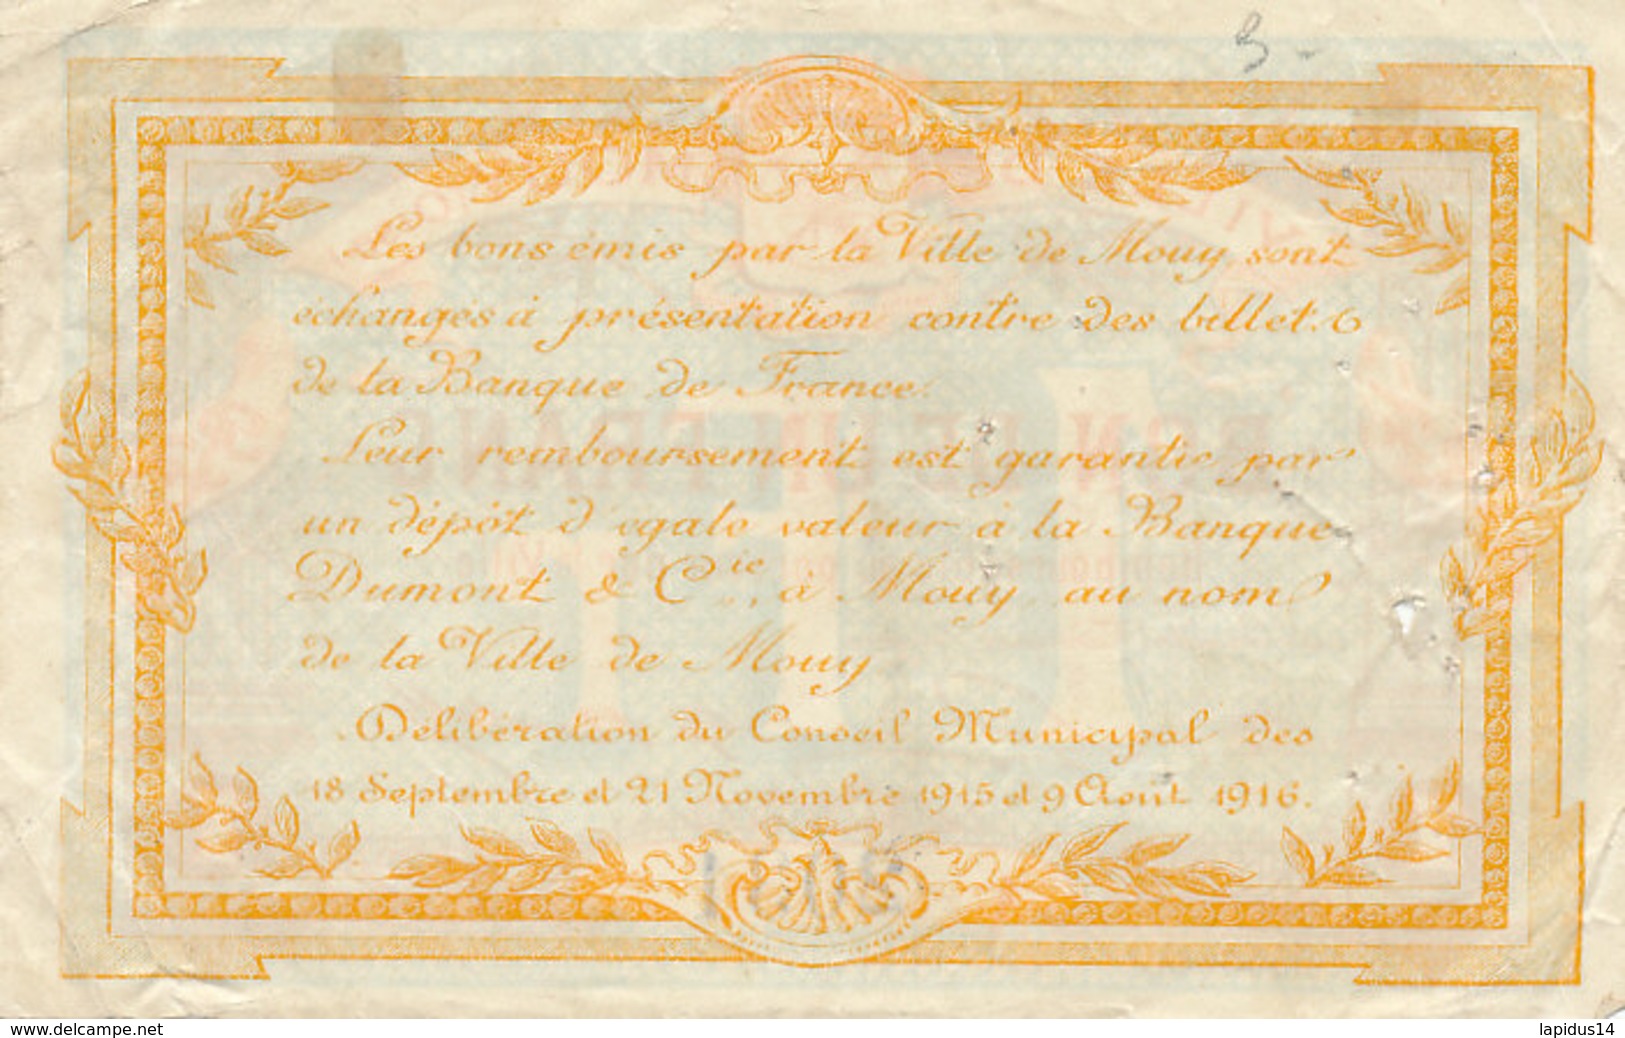 Les bons émis par la Ville de Mouy, sont
échangés à présentation contre des billets
de la Banque de France.
Leur remboursement est garantie par
un dépôt d'egale valeur à la Banque
Dumont & Cie, à Mouy, au nom
de la Ville de Mouy
Délibération du Conseil Municipal des
18 Septembre et 21 Novembre 1915 et 9 Août 1916.
www.delcampe.net
lapidus14